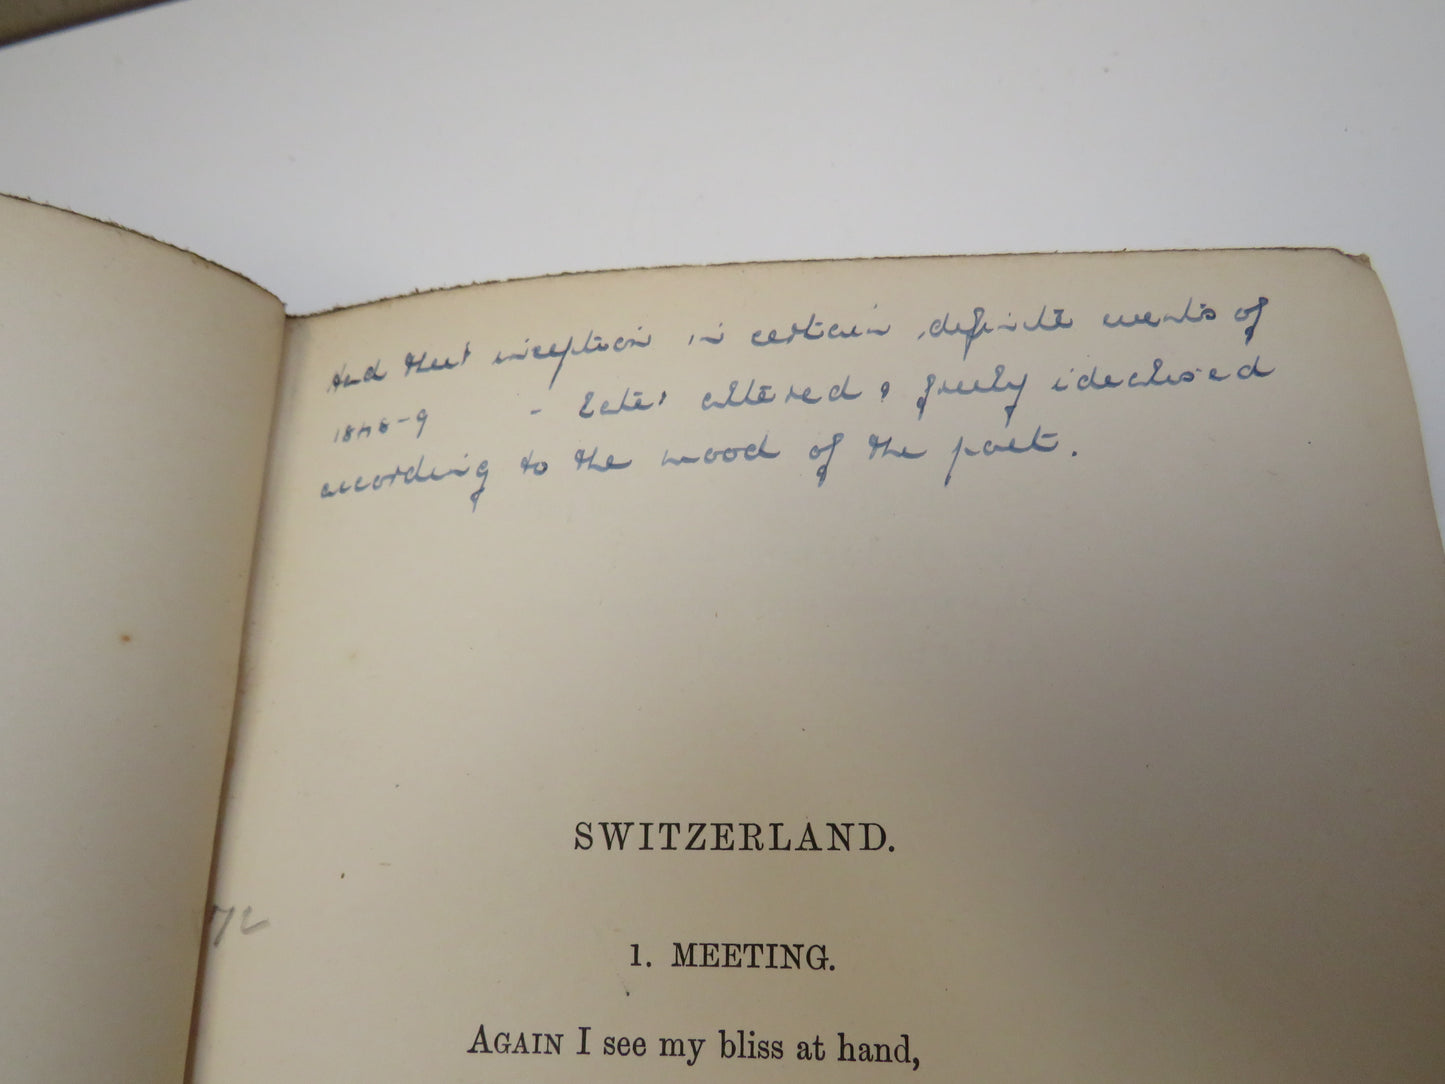 Had their inception in certain definite events of
1848-9 - Later altered & freely idealised
according to the mood of the poet.
SWITZERLAND.
72
1. MEETING.
AGAIN I see my bliss at hand,